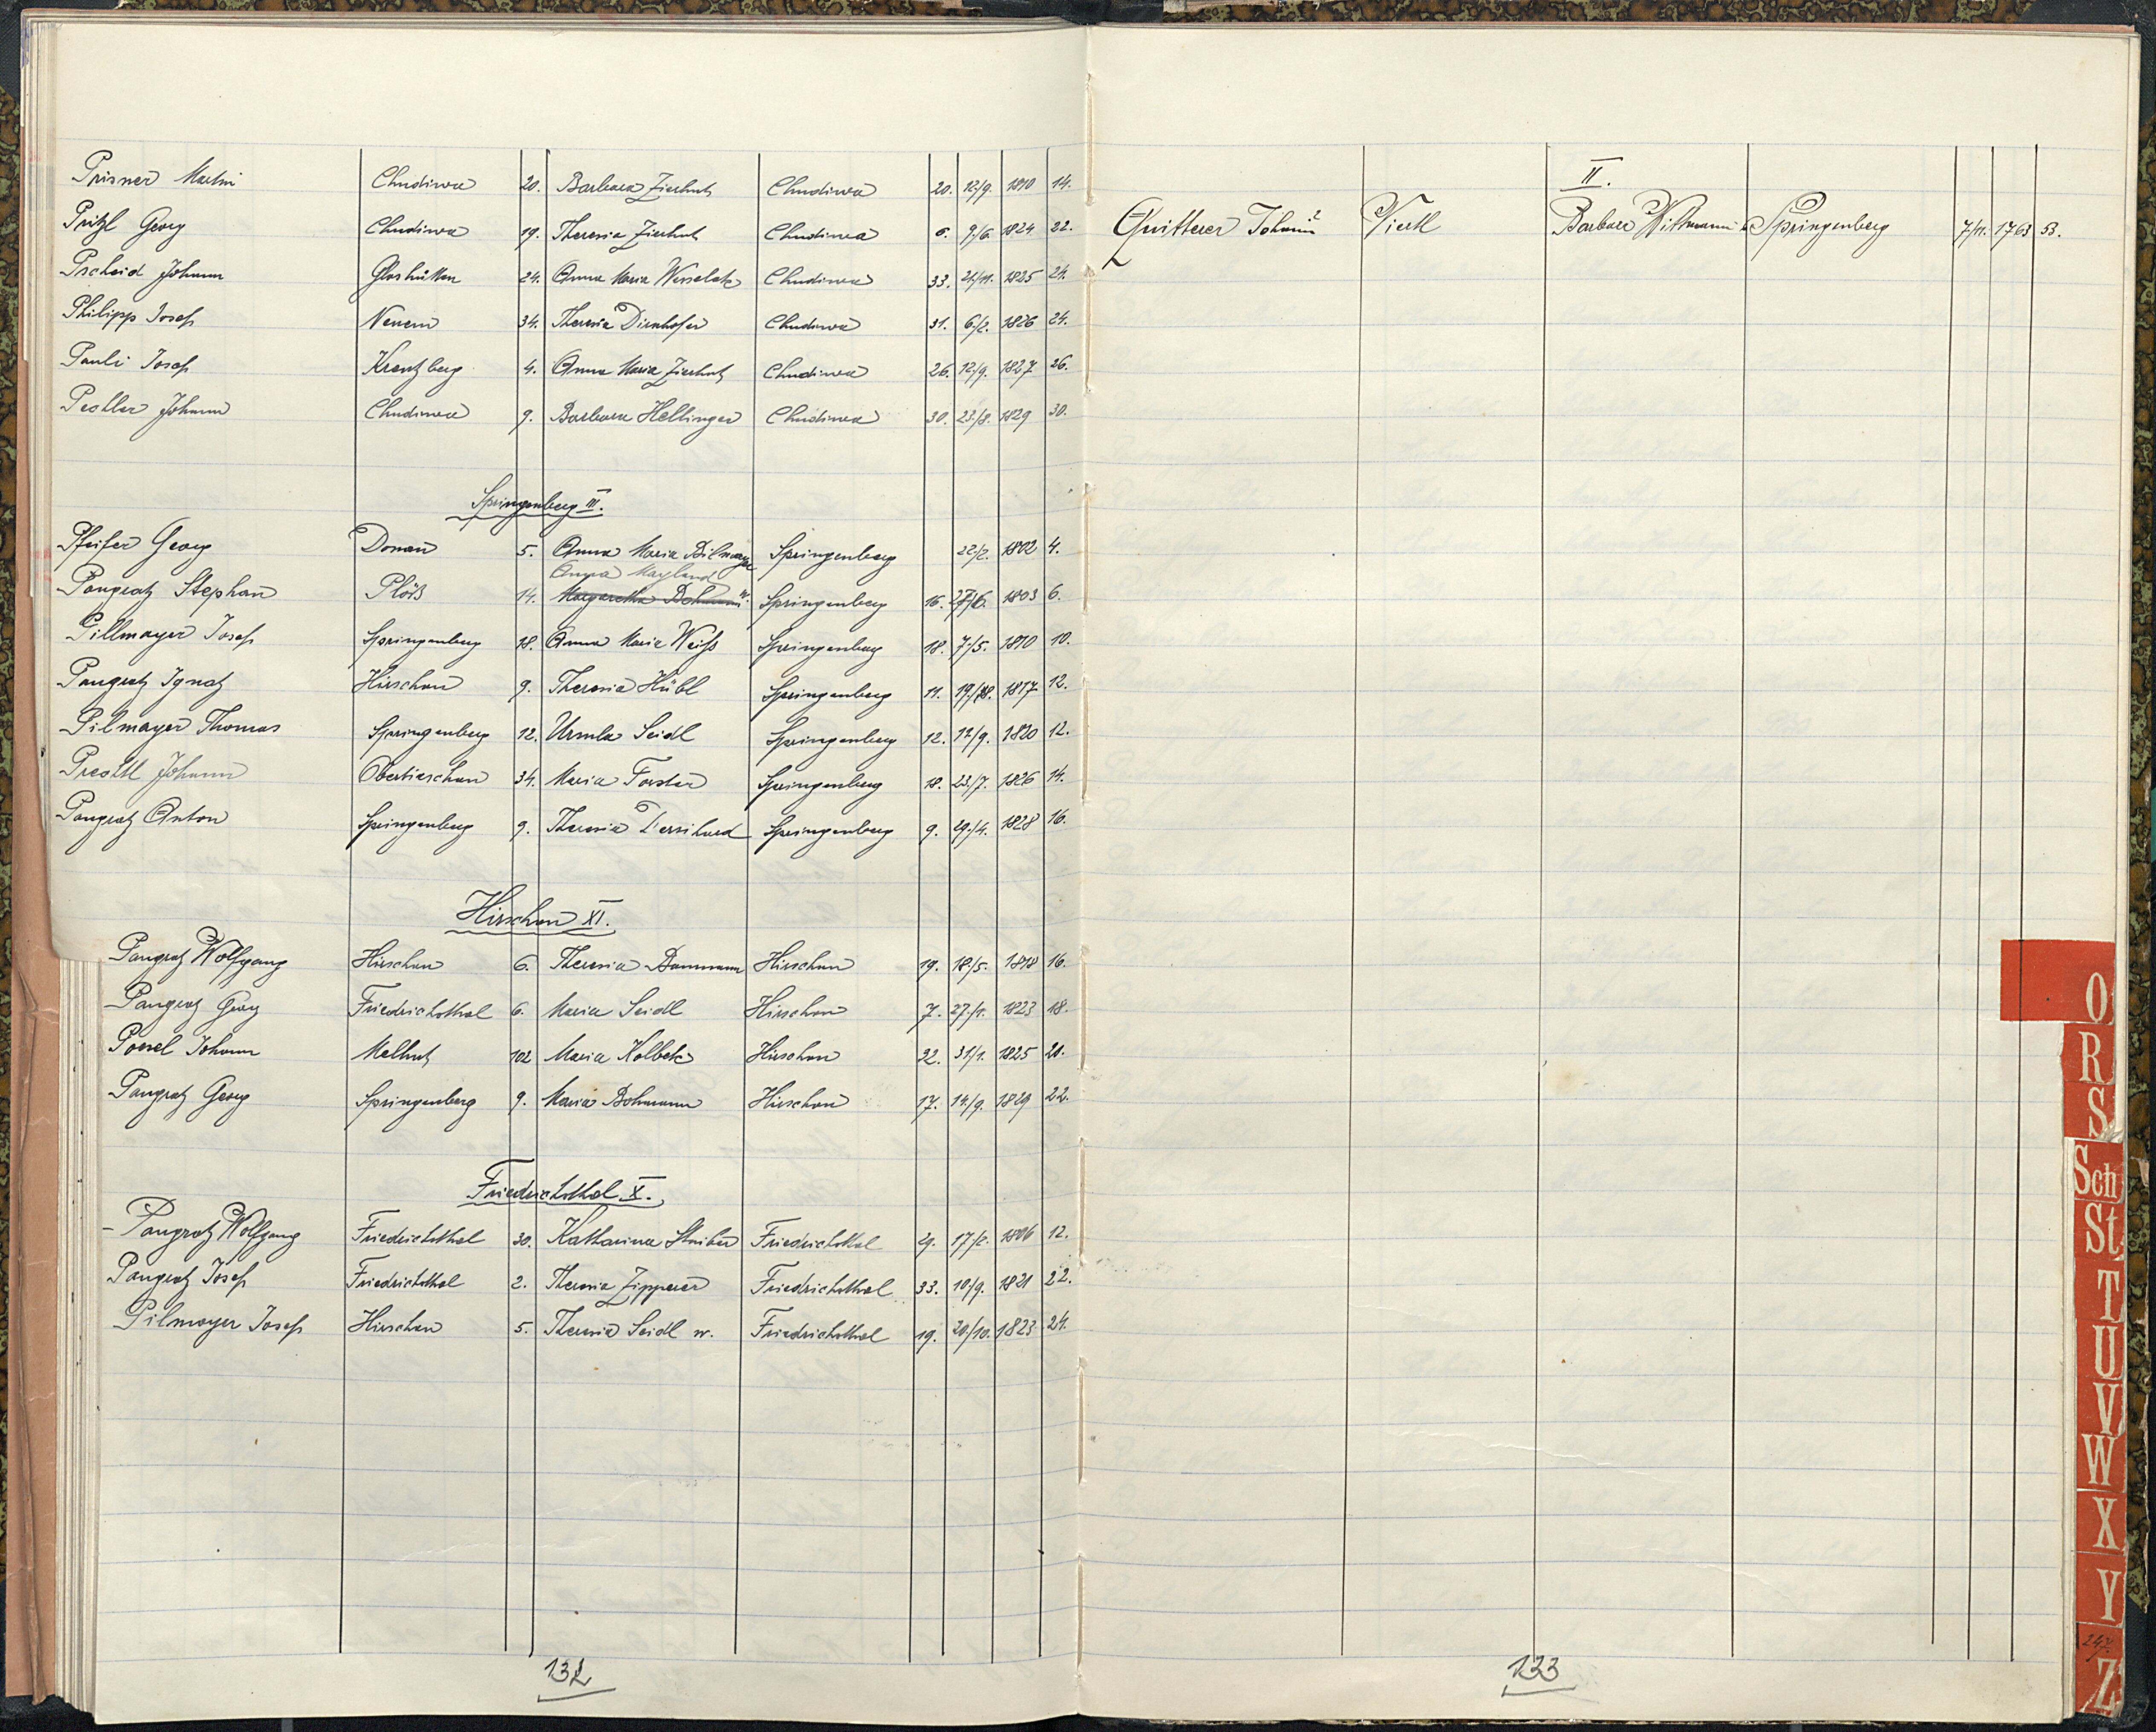 Prisner Martin Chudiwa 20. Barbara Zierhut Chudiwa 20. 12/9. 1810 14.
Pritzl Georg Chudiwa 19. Theresia Zierhut Chudiwa 6. 9/6. 1824 22.
Pscheid Johann Glashütten 24. Anna Maria Wesselak Chudiwa 33. 21/11. 1825 24.
Philipp Josef Neuern 34. Theresia Dirnhofer Chudiwa 31. 6/2. 1826 24.
Pauli Josef Kreutzberg 4. Anna Maria Zierhut Chudiwa 26. 12/9. 1827 26.
Johann Chudiwa 9. Barbara Hellinger Chudiwa 30. 23/8. 1829 30.
Springenberg III.
Pfeifer Georg Donau 5. Anna Maria Bilmayer Springenberg 22/2. 1802 4.
Anna Mayland
Pangratz Stephan Plöß 14. Margaretha Bohmann w. Springenberg 16. 1803 6.
Pillmayer Josef Springenberg 18. Anna Maria Weiß Springenberg 18. 7/5. 1810 10.
Pangratz Ignatz Hirschau 9. Theresia Hübl Springenberg 11. 1817 12.
Pilmayer Thomas Springenberg 12. Ursula Seidl Springenberg 12. 12/9. 1820 12.
Prechtl Johann 34. Maria Forster Springenberg 18. 23/7. 1826 14.
Pangratz Anton Springenberg 9. Theresia Springenberg 9. 29/4. 1828 16.
Hirschau XI.
Pangratz Wolfgang Hirschau 6. Theresia Baumann Hirschau 19. 18/5. 1818 16.
Pangratz Georg Friedrichsthal 6. Maria Seidl Hirschau 7. 27/1. 1823 18.
Johann Melhut 102 Maria Kolbek Hirschau 32. 31/1. 1825 20.
Pangratz Georg Springenberg 9. Maria Bohmann Hirschau 17. 14/9. 1829 22.
Friedrichsthal X.
- Pangratz Wolfgang Friedrichsthal 30. Katharina Stuiber Friedrichsthal 29. 17/2. 1806 12.
Pangratz Josef Friedrichsthal 2. Theresia Zipperer Friedrichsthal 33. 10/9. 1821 22.
Pilmayer Josef Hirschau 5. Theresia Seidl w. Friedrichsthal 19. 20/10. 1823 24.
132
II.
Quitterer Johann Viertl Barbara Wittmann Springenberg 7/11. 1763 53.
133
O
R
S
Sch
St
T
U
V
W
X
Y
247.
Z